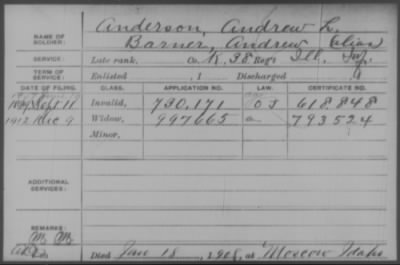 NAME OF SOLDIER: Anderson, Andrew L.
Barner, Andrew alias
SERVICE: Late rank, Co. K, 38 Reg't Ill. Inf.
TERM OF SERVICE: Enlisted , 1 Discharged , 1
DATE OF FILING. CLASS. APPLICATION NO. LAW. CERTIFICATE NO.
Sept. 11 Invalid, 730,171 618,848
1912 Dec 9 Widow, 997665 a 793524
Minor,
ADDITIONAL SERVICES:
REMARKS:
Died Jan 18, 1908, at Moscow Idaho